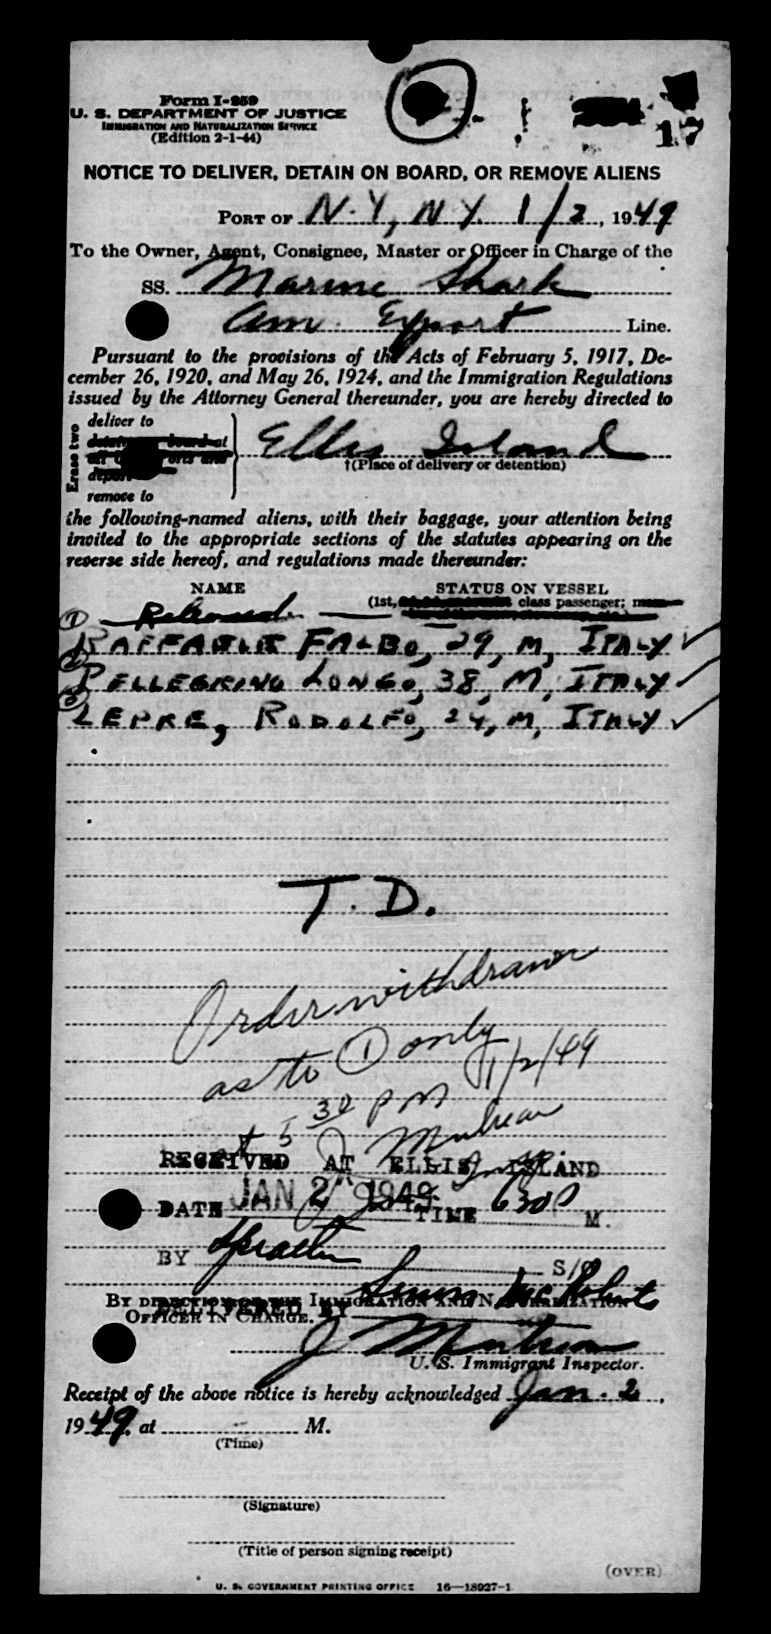 Form I-259
U. S. DEPARTMENT OF JUSTICE
IMMIGRATION AND NATURALIZATION SERVICE
(Edition 2-1-44)
17
NOTICE TO DELIVER, DETAIN ON BOARD, OR REMOVE ALIENS
PORT OF N.Y, N.Y. 1/2, 1949
To the Owner, Agent, Consignee, Master or Officer in Charge of the
SS. Marine Shark
Am. Export Line.
Pursuant to the provisions of the Acts of February 5, 1917, De-
cember 26, 1920, and May 26, 1924, and the Immigration Regulations
issued by the Attorney General thereunder, you are hereby directed to
Erase two
deliver to
Ellis Island
†(Place of delivery or detention)
remove to
the following-named aliens, with their baggage, your attention being
invited to the appropriate sections of the statutes appearing on the
reverse side hereof, and regulations made thereunder:
NAME STATUS ON VESSEL
(1st, class passenger;
① Released
RAFFAELE FALBO, 29, M, ITALY ✓
② PELLEGRINO LONGO, 38, M, ITALY ✓
③ LEPRE, RODOLFO, 24, M, ITALY ✓
T. D.
Order withdrawn
as to ① only
1/2/49
at 5 30 PM
J
RECEIVED AT ELLIS ISLAND
Insp.
DATE JAN 2 1949 TIME 630 P M.
BY S/O
DELIVERED BY
BY DIRECTION OF THE IMMIGRATION AND NATURALIZATION
OFFICER IN CHARGE.
U. S. Immigrant Inspector.
Receipt of the above notice is hereby acknowledged Jan. 2,
1949, at M.
(Time)
(Signature)
(Title of person signing receipt)
(OVER)
U. S. GOVERNMENT PRINTING OFFICE 16—18927-1